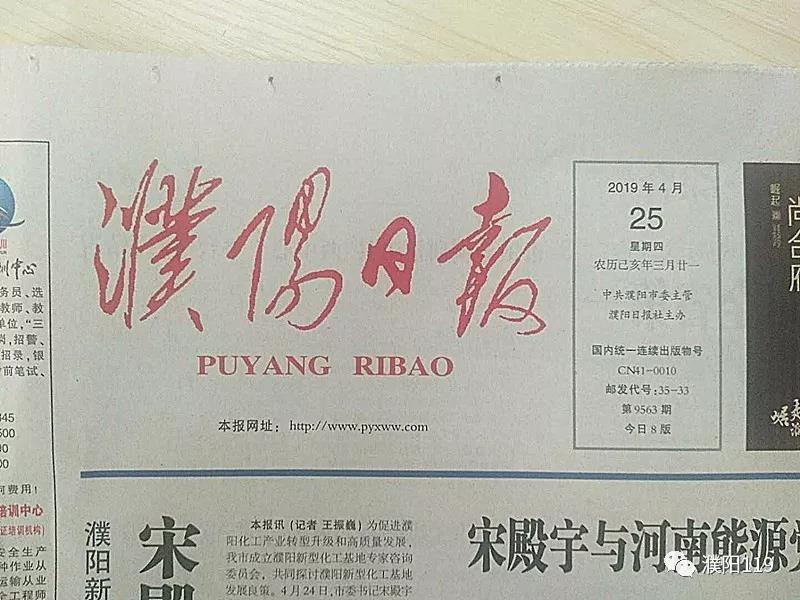 濮阳日报
PUYANG RIBAO
本报网址：http://www.pyxww.com
2019年4月
25
星期四
农历己亥年三月廿一
中共濮阳市委主管
濮阳日报社主办
国内统一连续出版物号
CN41-0010
邮发代号:35-33
第9563期
今日8版
训中心
务员、选
教师、教
单位,“三
岗,招警、
招录,银
前笔试、
345
500
00
何费用!
培训中心
证培训机构)
安全生产
种作业从
运输从业
全工程师
濮阳新
宋殿
本报讯(记者 王振巍)为促进濮
阳化工产业转型升级和高质量发展,
我市成立濮阳新型化工基地专家咨询
委员会,共同探讨濮阳新型化工基地
发展良策。4月24日,市委书记宋殿宇
宋殿宇与河南能源党
尚合府
崛起
濮阳119